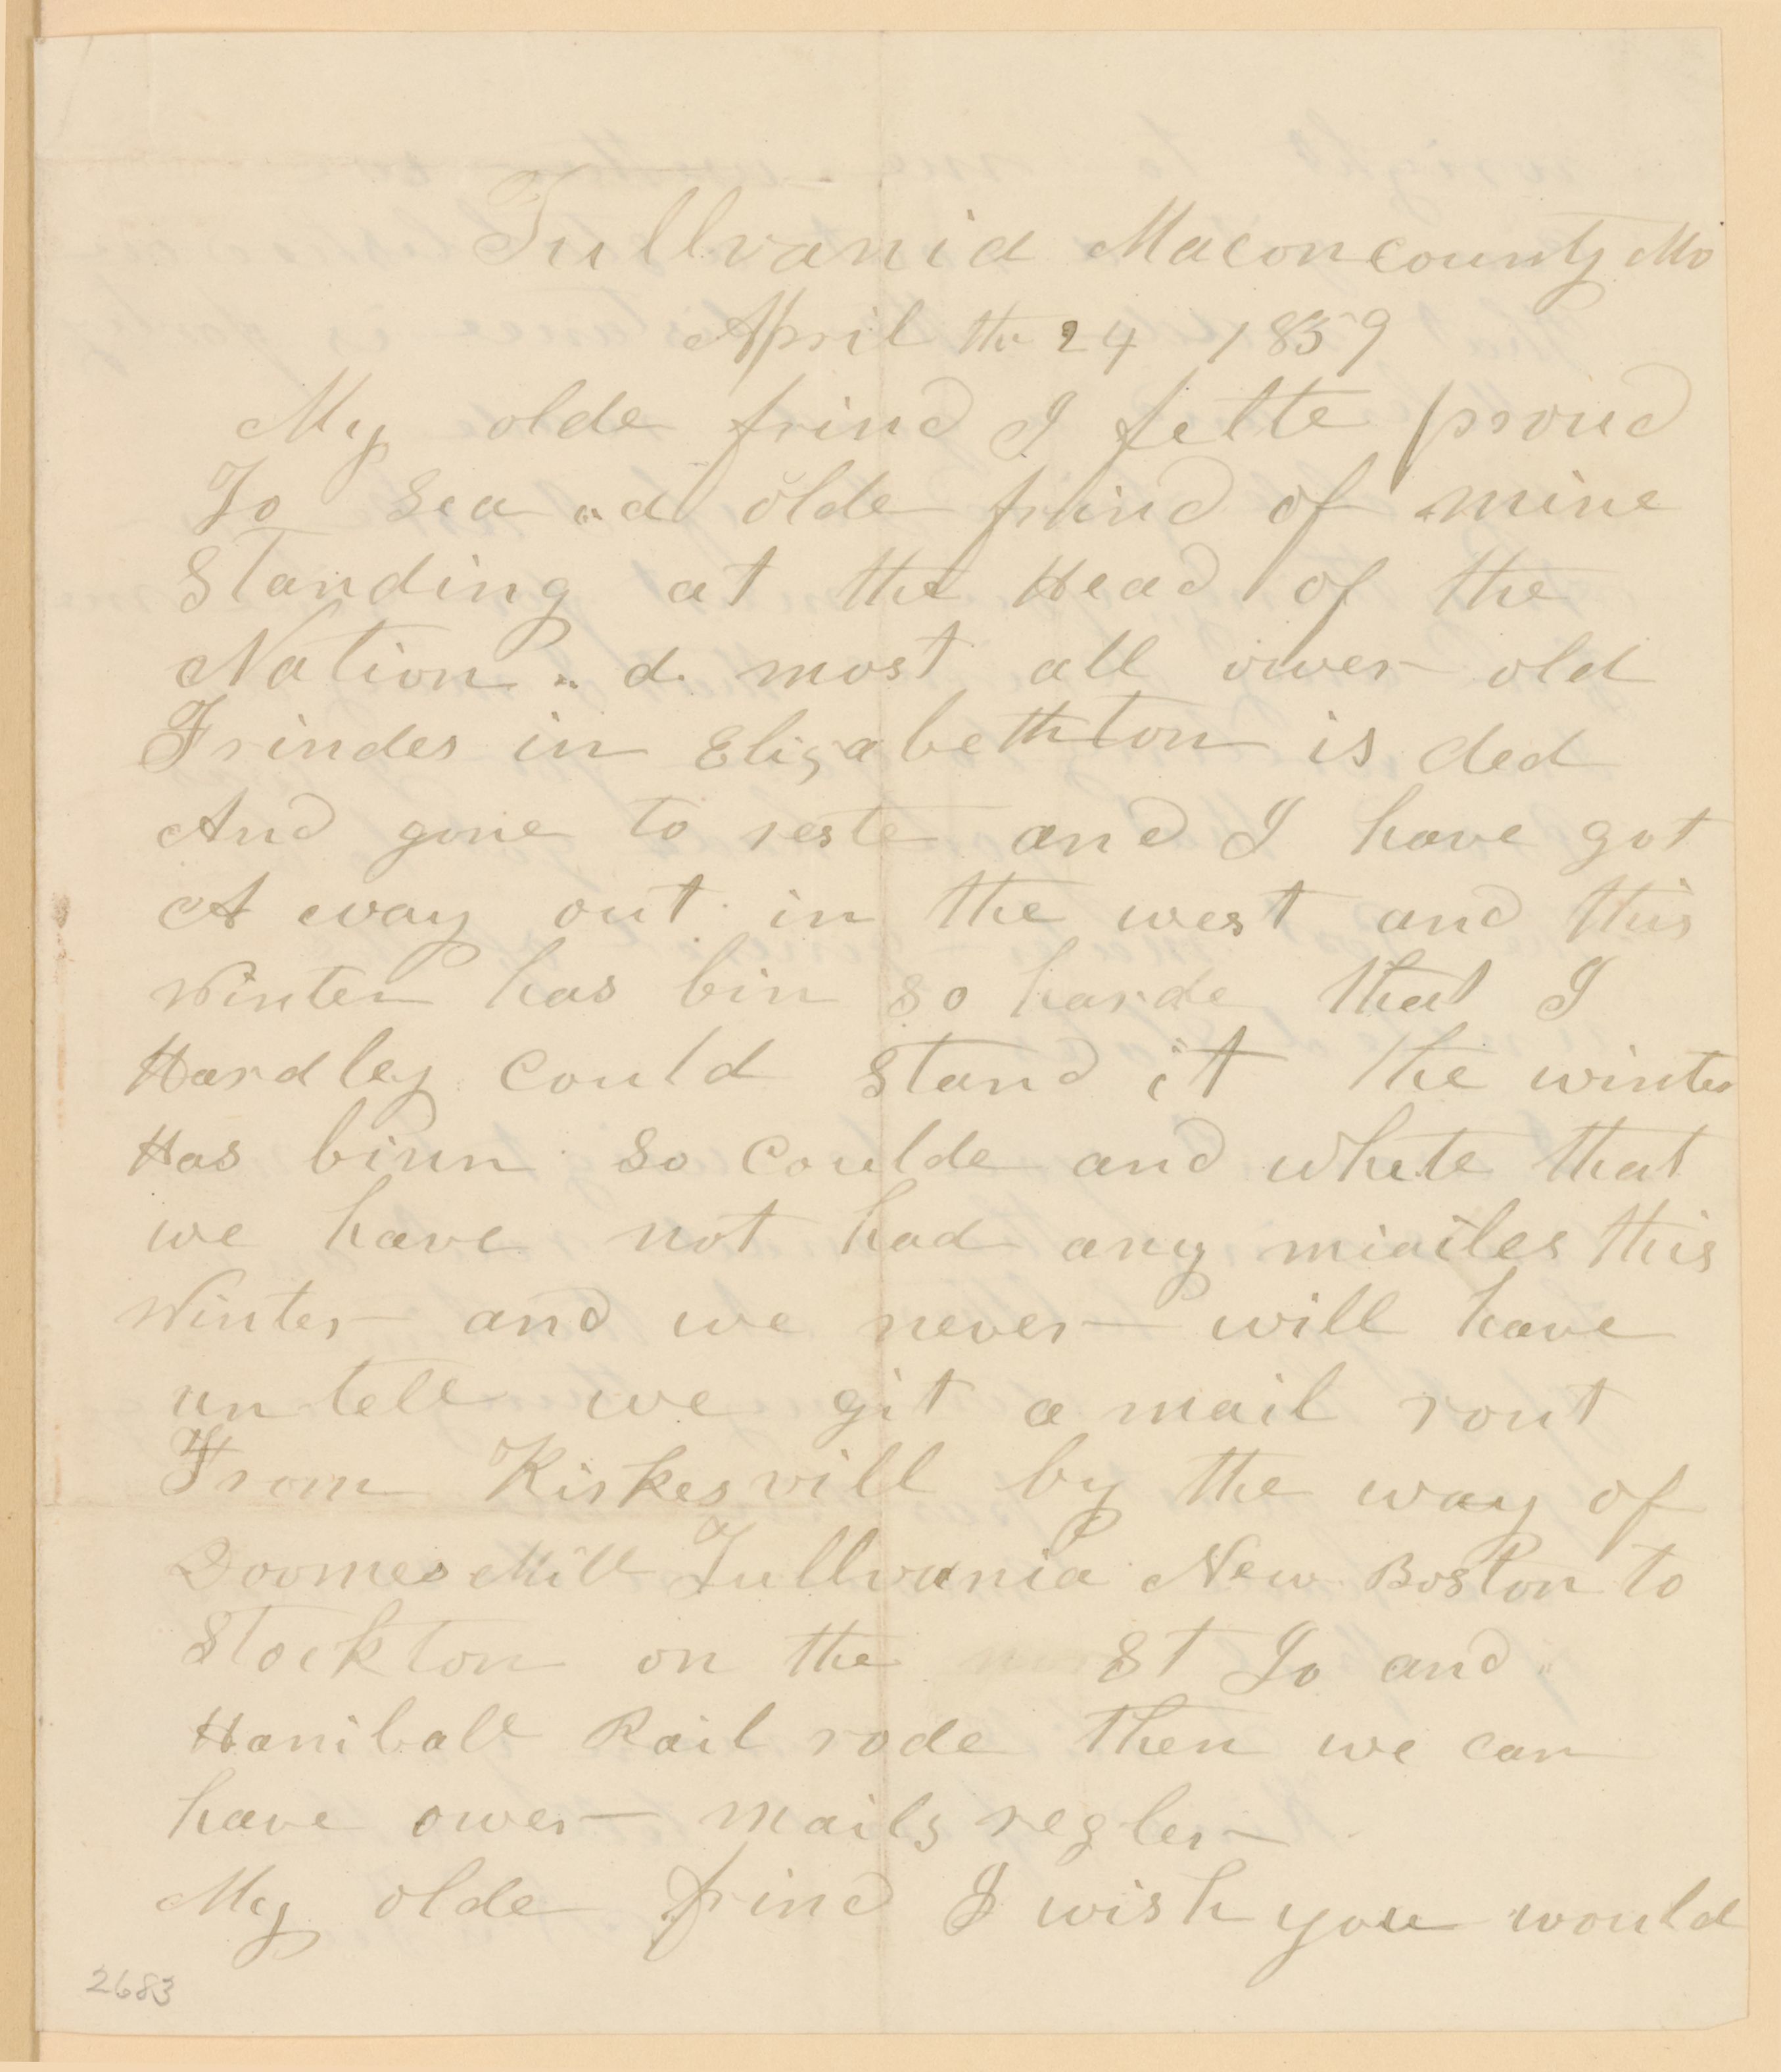 Tullvania Macon county Mo
April the 24 1859
My olde frind I felte proud
To Sea a olde frind of mine
Standing at the Head of the
Nation d. most all ower old
Frindes in Elizabethton is ded
And gone to reste and I have got
A way out in the west and this
Winter has bin so harde that I
Hardley could stand it the winter
Has binn so coulde and whete that
we have not had any miailes this
Winter and we never will have
un tell we git a mail rout
From Kirkesvill by the way of
Doomes Mill Tullvania New Boston to
Stockton on the St Jo and
Haniball Rail rode then we can
have ower mails regler
My olde frind I wish you would
2683